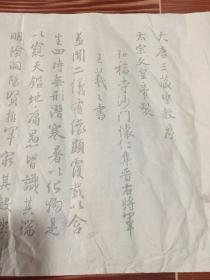 大唐三藏聖教序
太宗文皇帝製
弘福寺沙門懷仁集晉右將軍
王羲之書
蓋聞二儀有像顯覆載以含
生四時無形潛寒暑以化物是
以窺天鑑地庸愚皆識其端
明陰洞陽賢哲罕窮其數然